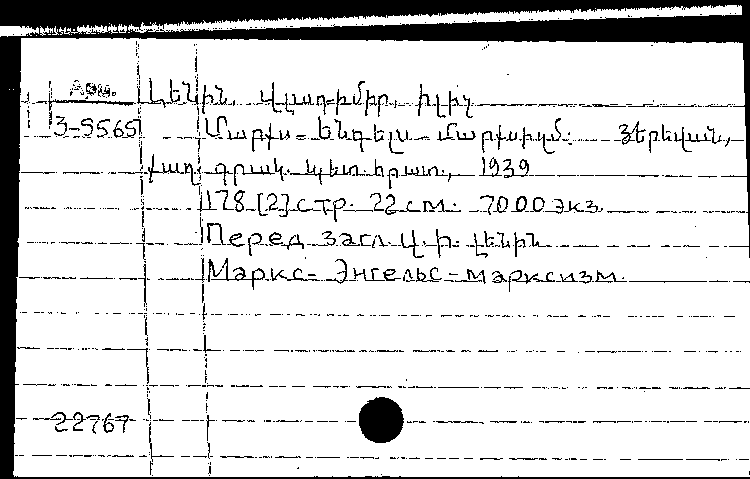 Арм.
Լենին, Վլադիմիր, Իլիչ
3-5565
Մարքս-Էնգելս-Մարքսիզմ: Յերեվան,
քաղ. գրակ. պետ. հրատ., 1939
178 [2] стр. 22 см. 7000 экз.
Перед загл. Վ. Ի. Լենին
Маркс-Энгельс-марксизм.
22767